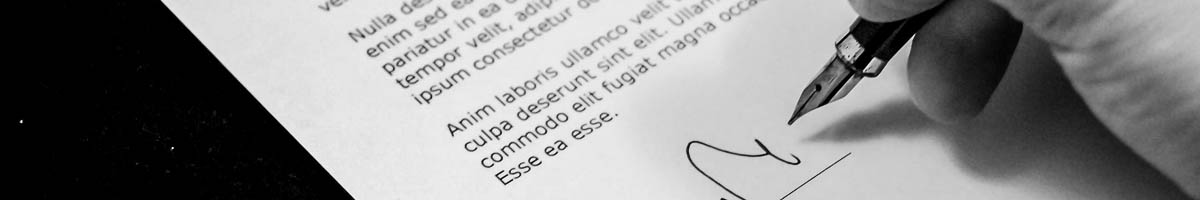 Nulla de
enim sed ea
pariatur in ea
tempor velit, adip
ipsum consectetur
Anim laboris ullamco velit
culpa deserunt sint elit. Ullam
commodo elit fugiat magna occa
Esse ea esse.